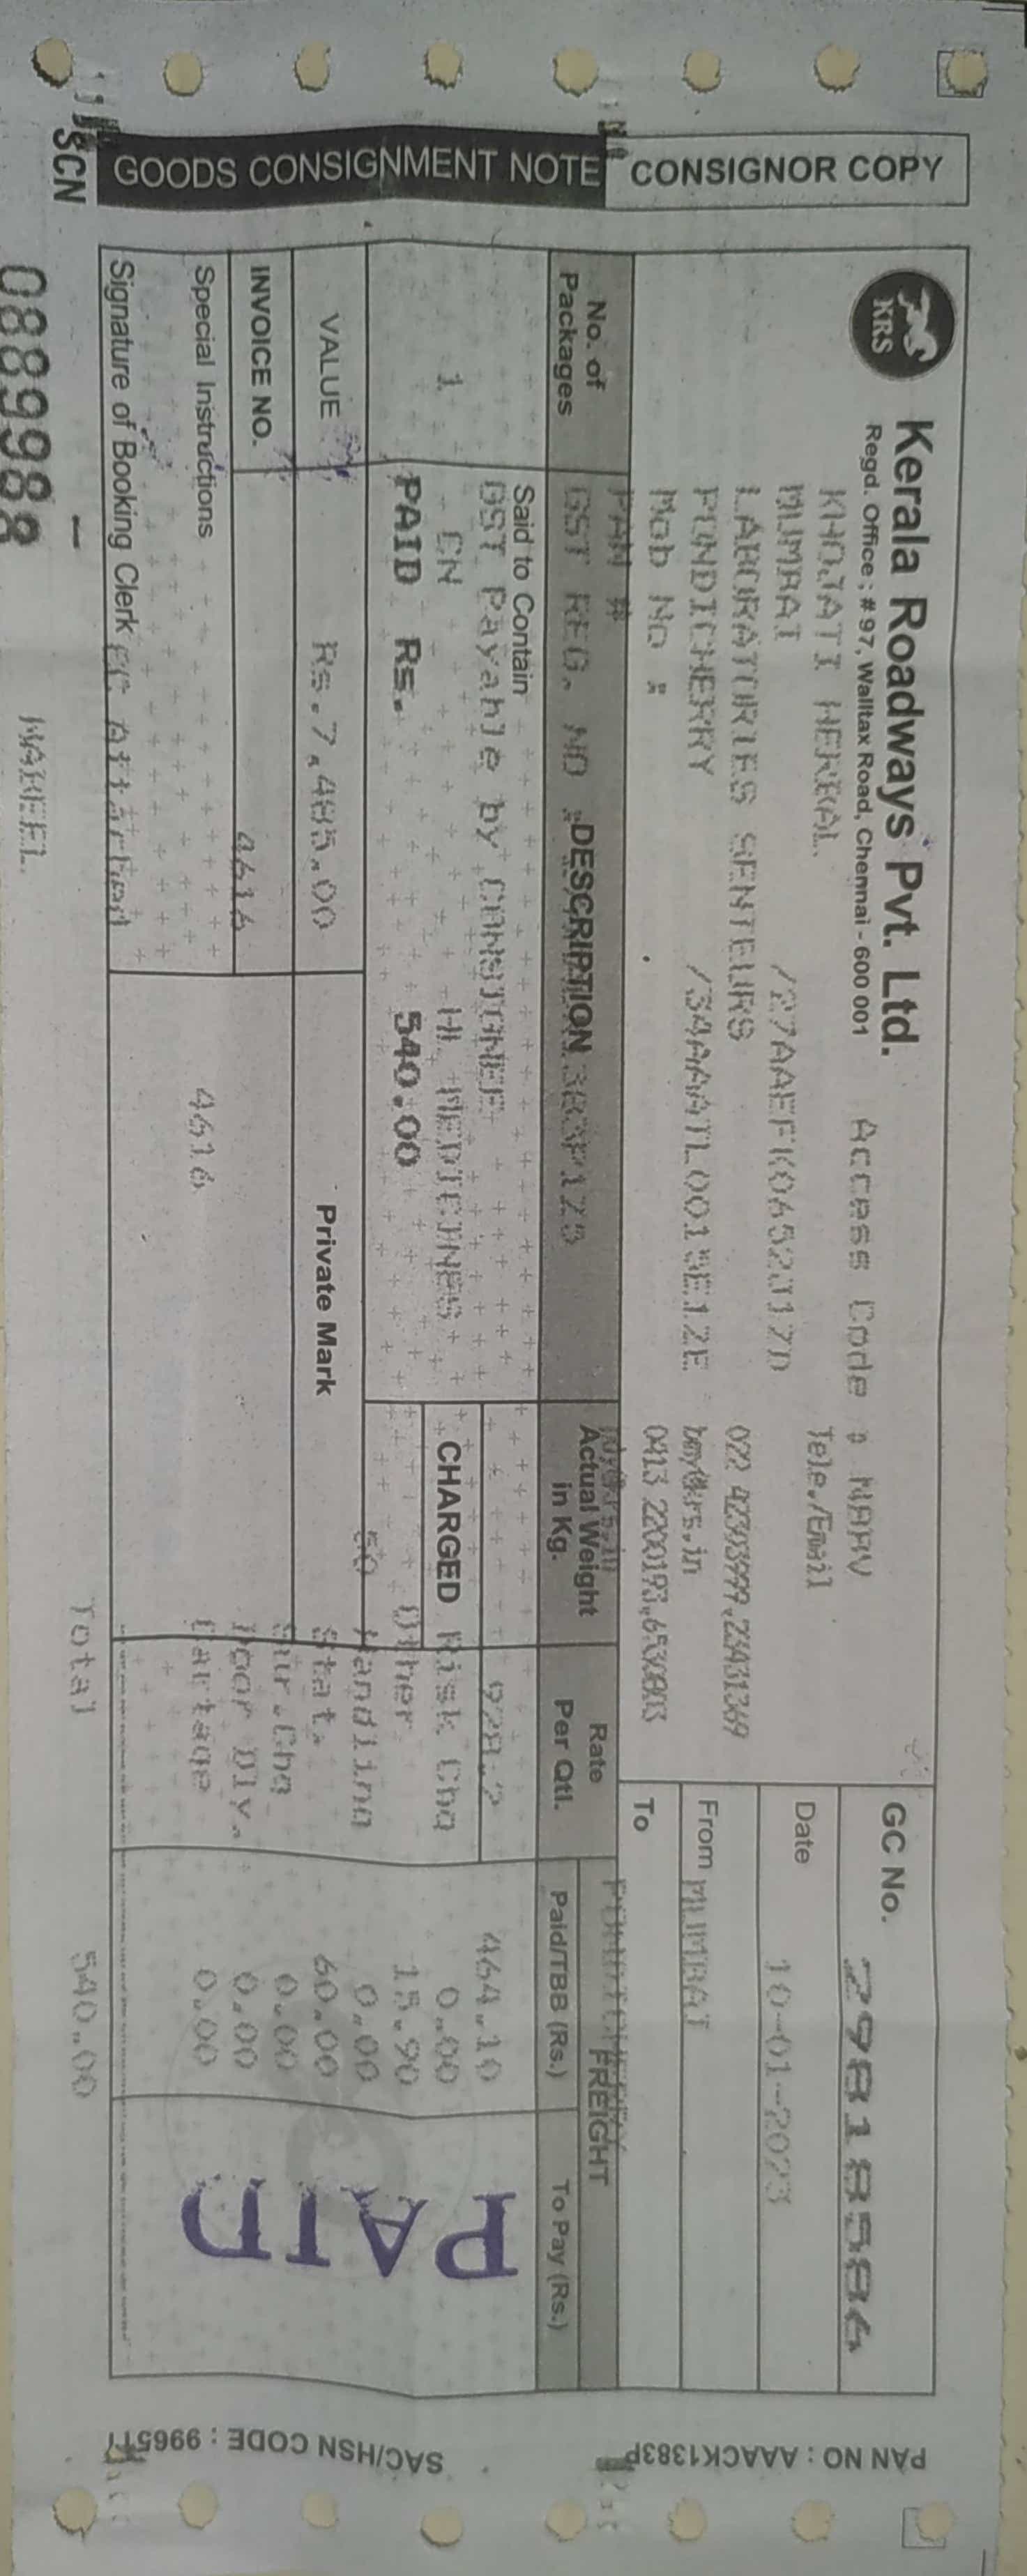 GOODS CONSIGNMENT NOTE
CONSIGNOR COPY
KRS
Kerala Roadways Pvt. Ltd.
Regd. Office : #97, Walltax Road, Chennai - 600 001
Access Code : MARV
KHOJATI HERBAL
Tele./Email
MUMBAI /27AAEFK0652J1ZD
LABORATORIES SENTEURS
022 42303999,23431369
PONDICHERRY /34AAATL0015E1ZE
bmy@krs.in
Mob No :
0413 2200193
GC No. 29818586
Date 10-01-2023
From MUMBAI
To PONDICHERRY
PAN #
GST REG. NO
No. of Packages
DESCRIPTION
Actual Weight in Kg.
Rate Per Qtl.
FREIGHT
Paid/TBB (Rs.)
To Pay (Rs.)
Said to Contain
GST Payable by CONSIGNEE
928.2 464.10
1 CN HL MEDICINES
CHARGED
Risk Chg 0.00
PAID Rs. 540.00
Other 15.90
50
Handling 0.00
VALUE Rs.7,485.00
Private Mark
Stat. 60.00
Sur.Chg 0.00
INVOICE NO. 4616
Door Dly. 0.00
Special Instructions
4616
Cartage 0.00
Signature of Booking Clerk
PAID
Total 540.00
SCN - 0889988
NABEEL
PAN NO : AAACK1383P
SAC/HSN CODE : 996511